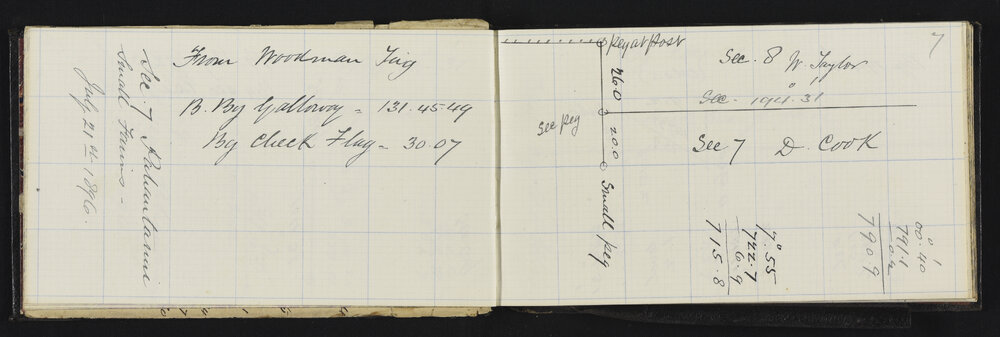 Sec. 7
Small Farms -
July 21st 1896.
From Woodman Trig
B. By Galloway = 131.45.49
By Check Flag = 30.07
7
Peg at Post
260
200
Sec peg
Small peg
Sec. 8 W Taylor
Sec. 191°.31
Sec 7 D. Cook
7°.55
722.7
6.9
715.8
0°.40
791.1
0.2
790.9